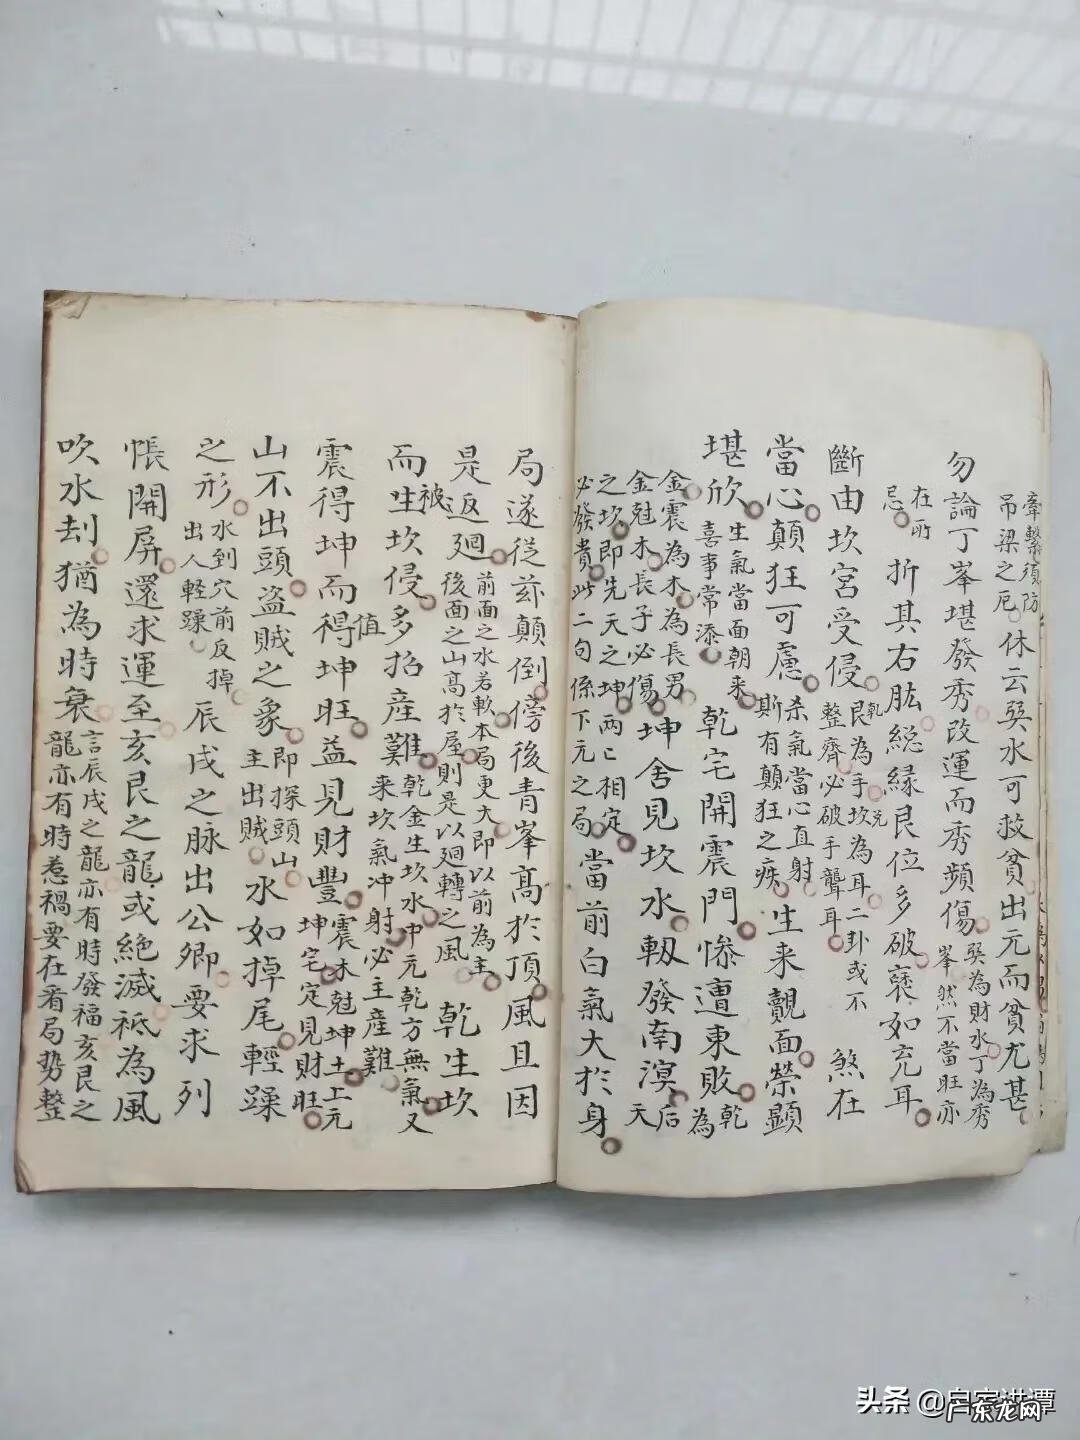 牽繫須防
吊梁之厄休云巽水可救貧出元而貧尤甚
勿論丁峯堪發秀改運而秀頻傷巽為財水丁為秀
峯然不當旺亦
在所
忌折其右肱緫緣艮位多破褒如充耳
斷由坎宮受侵乾艮為手坎為耳二卦或不兌
整齊必破手聾耳煞在
當心顛狂可慮杀氣當心直射
斯有顛狂之疾生来覿面榮顯
堪欣生氣當面朝来
喜事常添乾宅開震門慘遭東敗乾為
金震為木為長男
金尅木長子必傷坤舍見坎水軔發南溟后天
之坎即先天之坤兩亡相定
必發貴此二句係下元之局當前白氣大於身
局遂従茲顛倒傍後青峯髙於頂風且因
是返廻前面之水若軟本局更大即以前為主
後面之山髙於屋則是以廻轉之風乾生坎
而生被坎侵多招産難乾金生坎水中元乾方無氣又
来坎氣冲射必主産難
震得坤而得值坤旺益見財豐震木尅坤土上元
坤宅定見財旺
山不出頭盗賊之象即探頭山
主出賊水如掉尾輕躁
之形水到穴前反掉
出人輕躁辰戌之脉出公卿要求列
帳開屏還求運至亥艮之龍或絶滅祗為風
吹水刦猶為時衰言辰戌之龍亦有時發福亥艮之
龍亦有時惹禍要在看局勢整
头条@自家洪潭
广东龙网